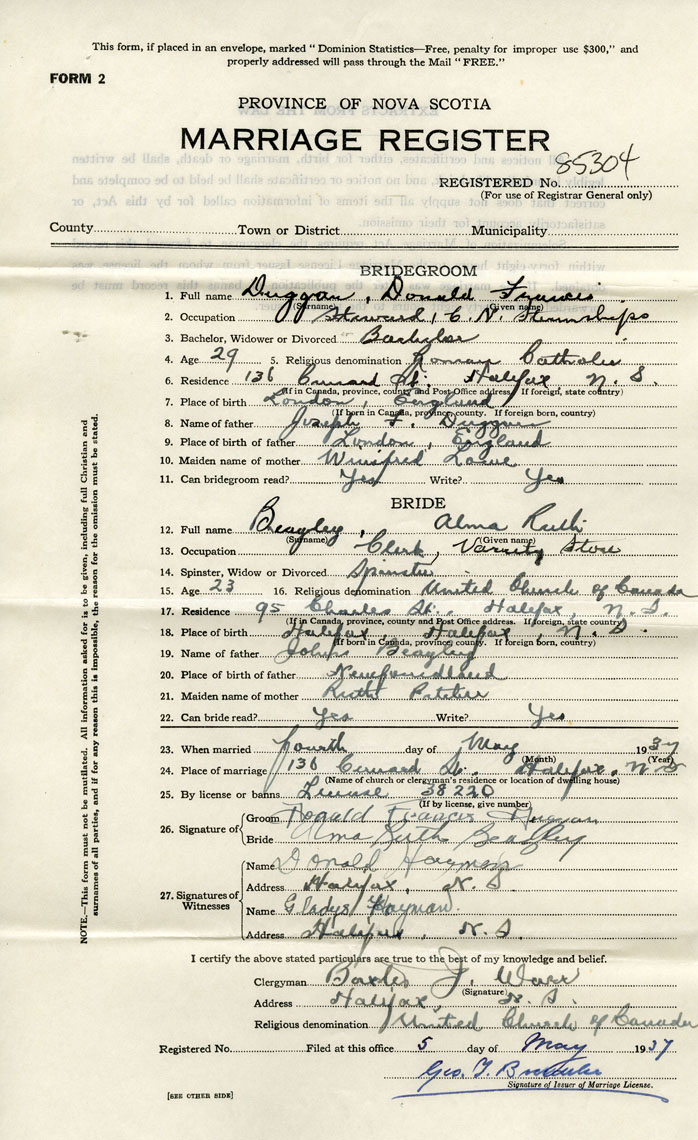 This form, if placed in an envelope, marked "Dominion Statistics—Free, penalty for improper use $300," and
properly addressed will pass through the Mail "FREE."
FORM 2
PROVINCE OF NOVA SCOTIA
MARRIAGE REGISTER
85304
REGISTERED No.
(For use of Registrar General only)
County Town or District Municipality
BRIDEGROOM
1. Full name Duggan, Donald Francis
(Surname) (Given name)
2. Occupation Steward, C. N. Steamships
3. Bachelor, Widower or Divorced Bachelor
4. Age 29 5. Religious denomination Roman Catholic
6. Residence 136 Cunard St. Halifax N. S.
(If in Canada, province, county and Post Office address. If foreign, state country)
7. Place of birth London, England
(If born in Canada, province, county. If foreign born, country)
8. Name of father Joseph F. Duggan
9. Place of birth of father London, England
10. Maiden name of mother Winifred Lowe
11. Can bridegroom read? Yes Write? Yes
BRIDE
12. Full name Beagley, Alma Ruth
(Surname) (Given name)
13. Occupation Clerk, Varsity Store
14. Spinster, Widow or Divorced Spinster
15. Age 23 16. Religious denomination United Church of Canada
17. Residence 95 Charles St. Halifax, N. S.
(If in Canada, province, county and Post Office address. If foreign, state country)
18. Place of birth Halifax, Halifax, N. S.
(If born in Canada, province, county. If foreign born, country)
19. Name of father Beagley
20. Place of birth of father Newfoundland
21. Maiden name of mother Ruth
22. Can bride read? Yes Write? Yes
23. When married fourth day of May 1937
(Month) (Year)
24. Place of marriage 136 Cunard St. Halifax, N. S
(Name of church or clergyman's residence or location of dwelling house)
25. By license or banns License 38220
(If by license, give number)
26. Signature of
Groom Donald Francis Duggan
Bride Alma Ruth Beagley
27. Signatures of Witnesses
Name Donald Hayman
Address Halifax, N. S.
Name Gladys Hayman
Address Halifax, N. S.
I certify the above stated particulars are true to the best of my knowledge and belief.
Clergyman Baxter J. Warr
(Signature)
Address Halifax, N. S.
Religious denomination United Church of Canada
Registered No. Filed at this office 5 day of May 1937
Geo. T.
Signature of Issuer of Marriage License.
[SEE OTHER SIDE]
NOTE.—This form must not be mutilated. All information asked for is to be given, including full Christian and
surnames of all parties, and if for any reason this is impossible, the reason for the omission must be stated.